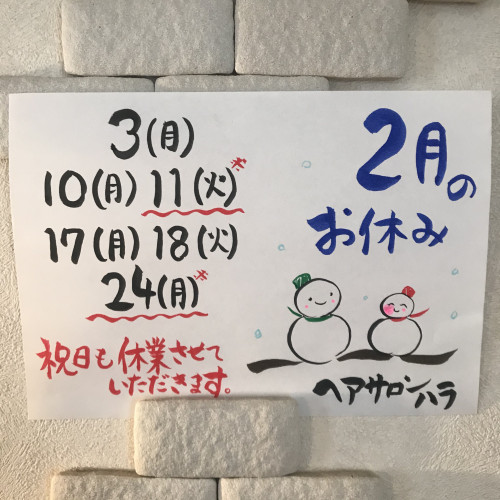 2月の
お休み
3(月)
10(月) 11(火)*
17(月) 18(火)
24(月)*
祝日も休業させて
いただきます。
ヘアサロンハラ